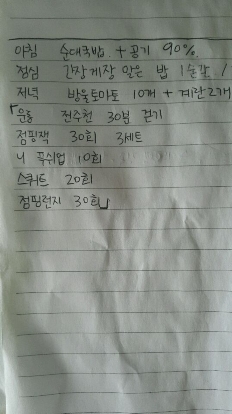 아침 순대국밥 + 공기 90%
점심 간장게장 양은 밥 1숟갈 /
저녁 방울토마토 10개 + 계란 2개
「운동 전주천 30분 걷기
점핑잭 30회 3세트
니 푹쉬업 10회
스쿼트 20회
점핑런지 30회」